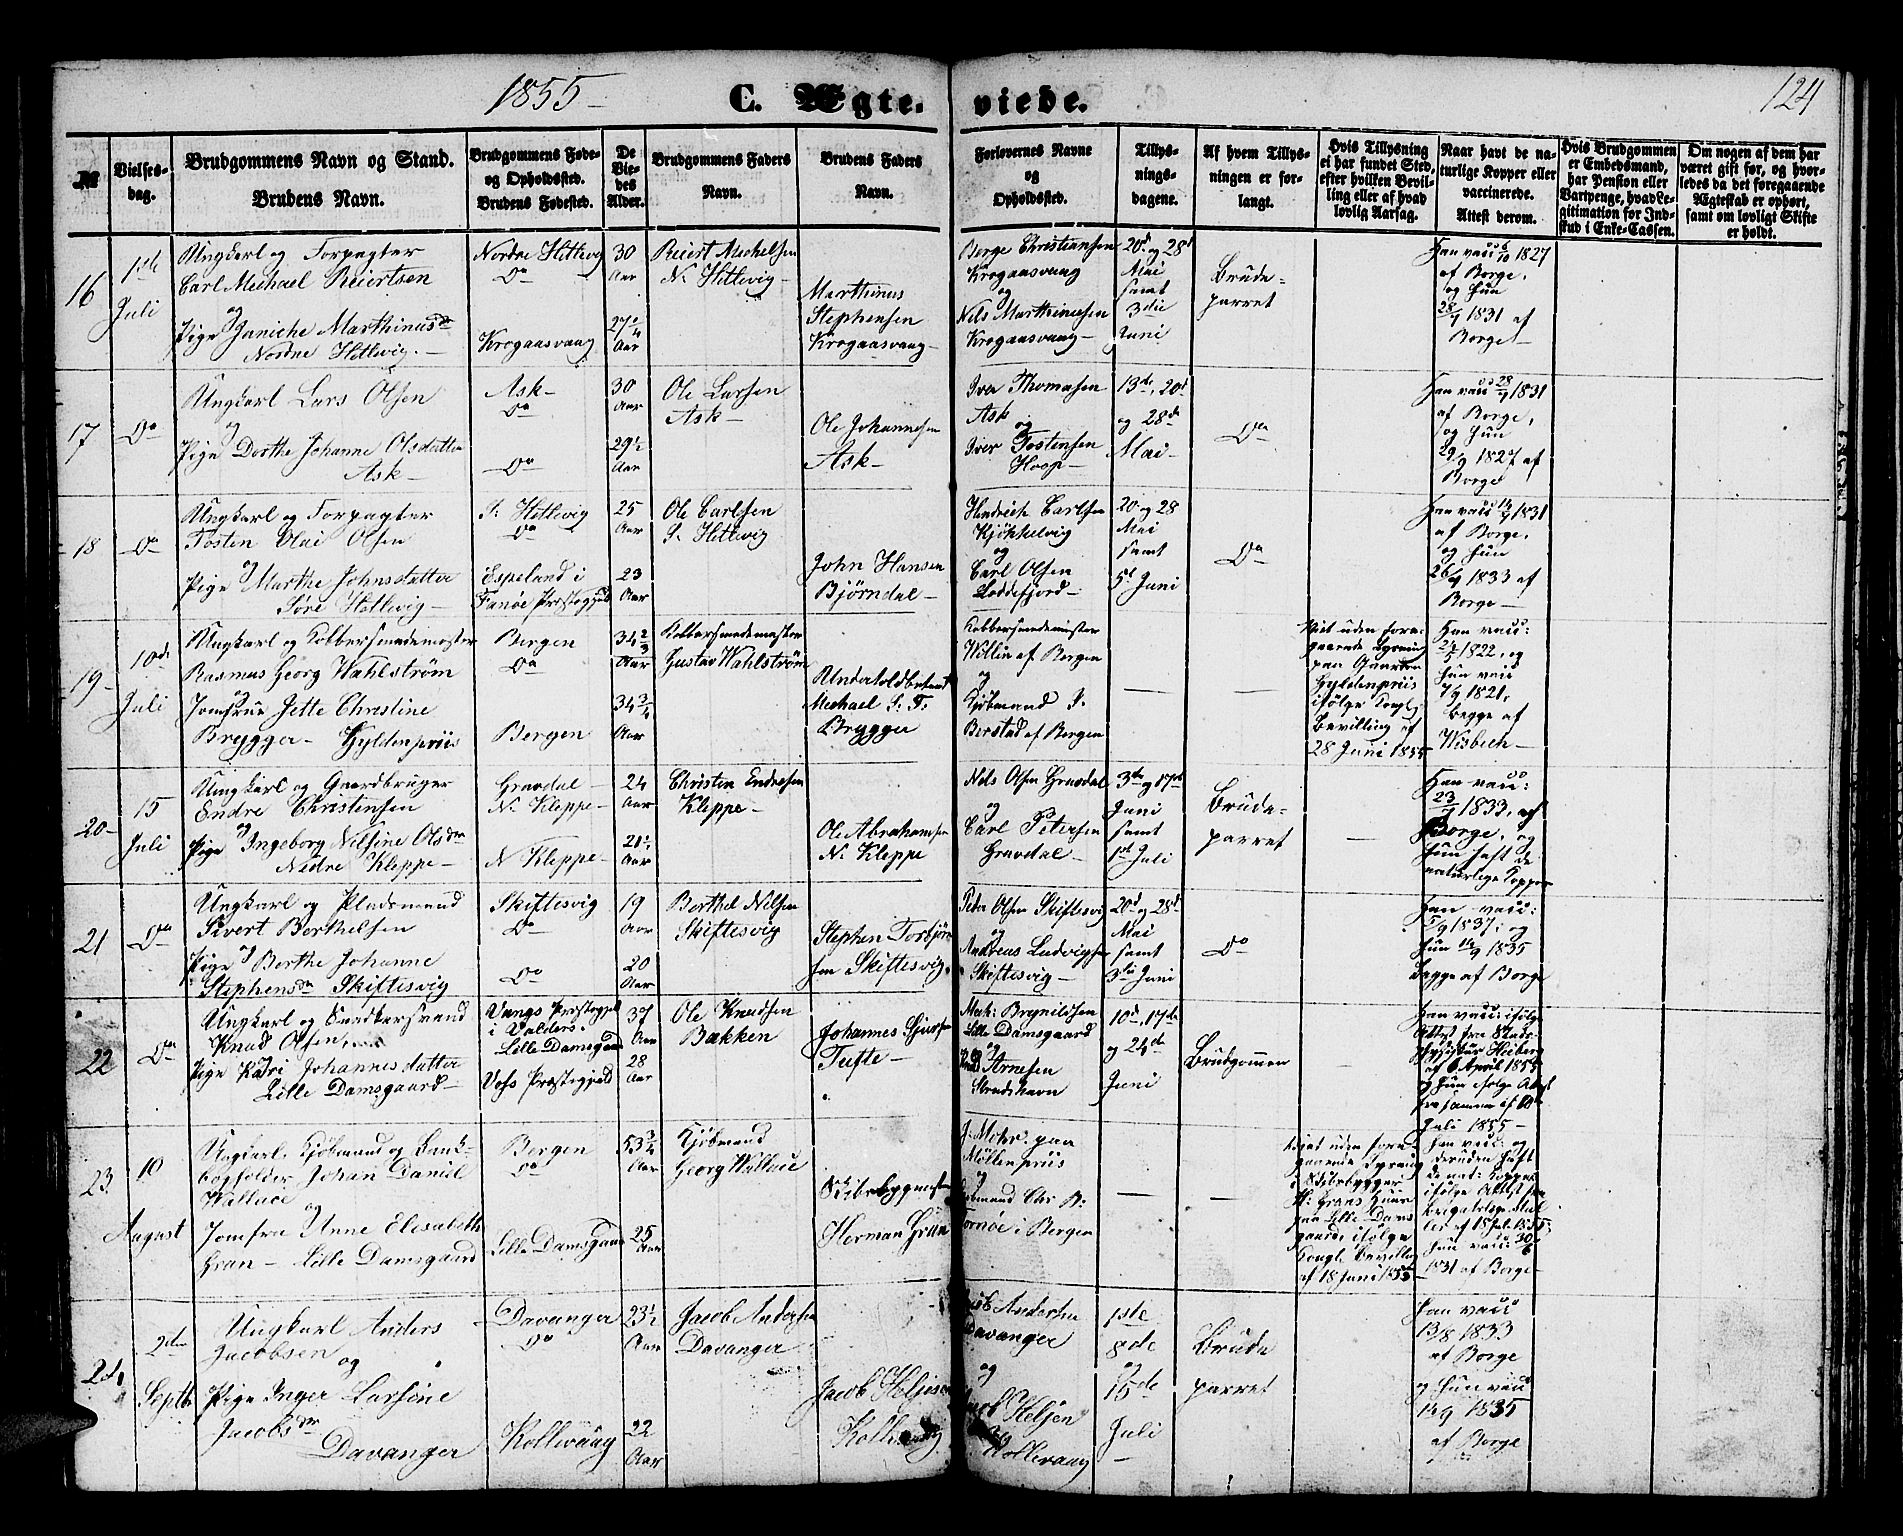 1855
C. Ægteviede.
124
№
Vielsesdag.
Brudgommens Navn og Stand.
Brudens Navn.
Brudgommens Føde-
og Opholdssted.
Brudens Fødested.
De
Vie-
des
Alder.
Brudgommens Faders
Navn.
Brudens Faders
Navn.
Forlovernes Navne
og
Opholdssted.
Tillys-
nings-
dagene.
Af hvem Tillys-
ningen er for-
langt.
Hvis Tillysning
ei har fundet Sted,
efter hvilken Bevil-
ling eller af hvad
lovlig Aarsag.
Naar havt de na-
turlige Kopper eller
vaccinerede.
Attest derom.
Hvis Brudgommen
er Embedsmand,
har Pension eller
Vartpenge, hvad Le-
gitimation for Ind-
skud i Enke-Cassen.
Om nogen af dem har
været gift før, og hvor-
ledes da det foregaaende
Ægteskab er ophørt,
samt om lovligt Skifte
er holdt.
16
1ste
Juli
Ungkarl og Forpagter
Carl Michael Reiertsen
og
Pige Janiche Marthinusdr
Nordre Hitlevig.
Nordre Hitlevig
Do
Krogaasvaag
30
Aar
27 1/4
Aar
Reiert Mechelsen
N. Hitlevig
Marthinus
Stephensen
Krogaasvaag
Børge Christiansen
Krogaasvaag
og
Nils Marthinusen
Krogaasvaag
20d og 28d
Mai
samt
3die
Juni
Brude-
parret
Han vacc 6/10 1827
af Borge,
og hun
28/9 1831 af
Borge
17
Do
Ungkarl Lars Olsen
og
Pige Dorthe Johanne Olsdatter
Ask
Ask
Do
Do
30
Aar
29 1/2
Aar
Ole Larsen
Ask
Ole Johannesen
Ask
Iver Thomasen
Ask
og
Iver Tostensen
Hoop
13de, 20d
og 28de
Mai
Do
Han vacc 28/9 1831
af Borge,
og hun
29/9 1827 af
Borge
18
Do
Ungkarl og Forpagter
Tosten Olai Olsen
og
Pige Marthe Johnsdatter
Søre Hitlevig
S. Hitlevig
Do
Espeland i
Fanøe Præstegjeld
25
Aar
23
Aar
Ole Carlsen
S. Hitlevig
John Hansen
Bjørndal
Hendrich Carlsen
Kjøkkelvig
og
Carl Olsen
Loddefjord
20. og 28
Mai
samt
5d Juni
Do
Han vacc 14/9 1831
af Borge,
og hun
26/9 1833 af
Borge
19
10de
Juli
Ungkarl og Kobbersmedemester
Rasmus Georg Wahlstrøm
og
Jomfrue Jette Christine
Brygger Hyldenpriis
Bergen
Do
Bergen
34 2/3
Aar
34 3/4
Aar
Kobbersmedemester
Gustav Wahlstrøm
Undertoldbetjent
Michael S. F.
Brygger
Kobbersmedemester
Willin af Bergen
og
Kjøbmand S.
Berstad af Bergen
Viet uden fore-
gaaende Lysning
paa Gaarden
Hyldenpriis
ifølge Kongl.
Bevilling af
28 Juni 1855
Han vacc:
1822, og
hun vacc
7/9 1821,
begge af
Wisbech
20
15
Juli
Ungkarl og Gaardbruger
Endre Christensen
og
Pige Ingeborg Nilsine Olsdr
Nedre Kleppe
Gravdal
N. Kleppe
N. Kleppe
24
Aar
21 1/2
Aar
Christen Endresen
Kleppe
Ole Abrahamsen
N. Kleppe
Nils Olsen Gravdal
og
Carl Petersen
Gravdal
3de og 17de
Juni
samt
1st Juli
Brude-
parret
Han vacc:
23/9 1833, af
Borge, og
hun haft de
naturlige Kopper
21
Do
Ungkarl og Pladsmand
Sivert Berthelsen
og
Pige Berthe Johanne
Stephensdr Skiftesvig
Skiftesvig
Do
Do
19
Aar
20
Aar
Berthel Nilsen
Skiftesvig
Stephen Torbjørn-
sen Skiftesvig
Peder Olsen Skiftesvig
og
Andreas Ludvigsen
Skiftesvig
20d og 28d
Mai
samt
3die Juni
Do
Han vacc:
5/9 1837; og
hun 14/9 1835
begge af Borge
22
Do
Ungkarl og
Knud Olsen,
Pige Kari Johannesdatter
Lille Damsgaard
Vangs Præstegjeld
i Valders.
Lille Damsgaard
Vofs Præstegjeld
37
Aar
28
Aar
Ole Knudsen
Bækken
Johannes
Tufte
Mich: Brynildsen
Lille Damsgaard
og
Arnesen
Strudshavn
10d, 17de
og 24de
Juni
Brudgommen
Han vacc: ifølge
Attest fra Stads-
physikus Heiberg
af 6 April 1855
og hun ifølge Attest
fra samme af 10de
Juli 1855
23
10
August
Ungkarl, Kjøbmand og Bank-
bogholder Johan Daniel
Wallace
og
Jomfru Anne Elisabeth
Gran Lille Damsgaard
Bergen
Do
Lille Damsgaard
53 3/4
Aar
25
Aar
Kjøbmand
Georg Wallace
Skibsbyggmester
Herman Gran
J. Mohr paa
Møllenpriis
og
Kjøbmand Chr. B.
Tornøe i Bergen
Viet uden fore-
gaaende Lysning
i Skibsbygger
H: Grans Huus
paa Lille Dams-
gaard, ifølge
Kongl. Bevilling
af 18 Juni 1855
Han vacc: og
desuden haft
de nat: Kopper
ifølge Attest fra
Brigadelæge Møl-
ler af 15 1855;
hun vacc: 30/6
1831 af Borge
24
2den
Septb
Ungkarl Anders
Jacobsen
og
Pige Inger Larsine
Jacobsdr
Davanger
Davanger
Do
Kollevaag
23 1/2
Aar
22
Aar
Jacob Andersen
Davanger
Jacob Heljesen
Kollevaag
Jacob Andersen
Davanger
og
Jacob Heljesen
Kollevaag
1ste
8de
og
15de
Juli
Brude
parret
Han vacc
13/8 1833
af Borge
og hun vacc
14/9 1835
af Borge